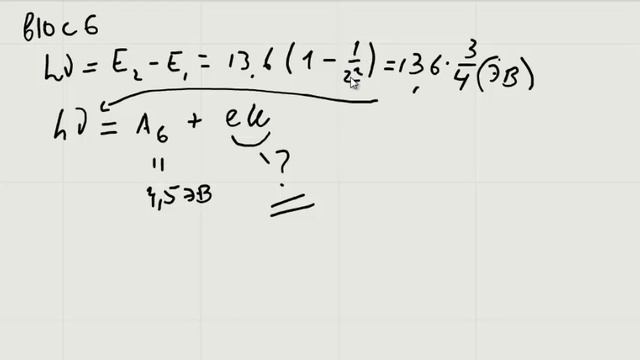 Блос 6
hν = E₂ - E₁ = 13,6 (1 - 1/2²) = 13,6 · 3/4 (эВ)
hν = A₆ + eU
" ?
4,5 эВ